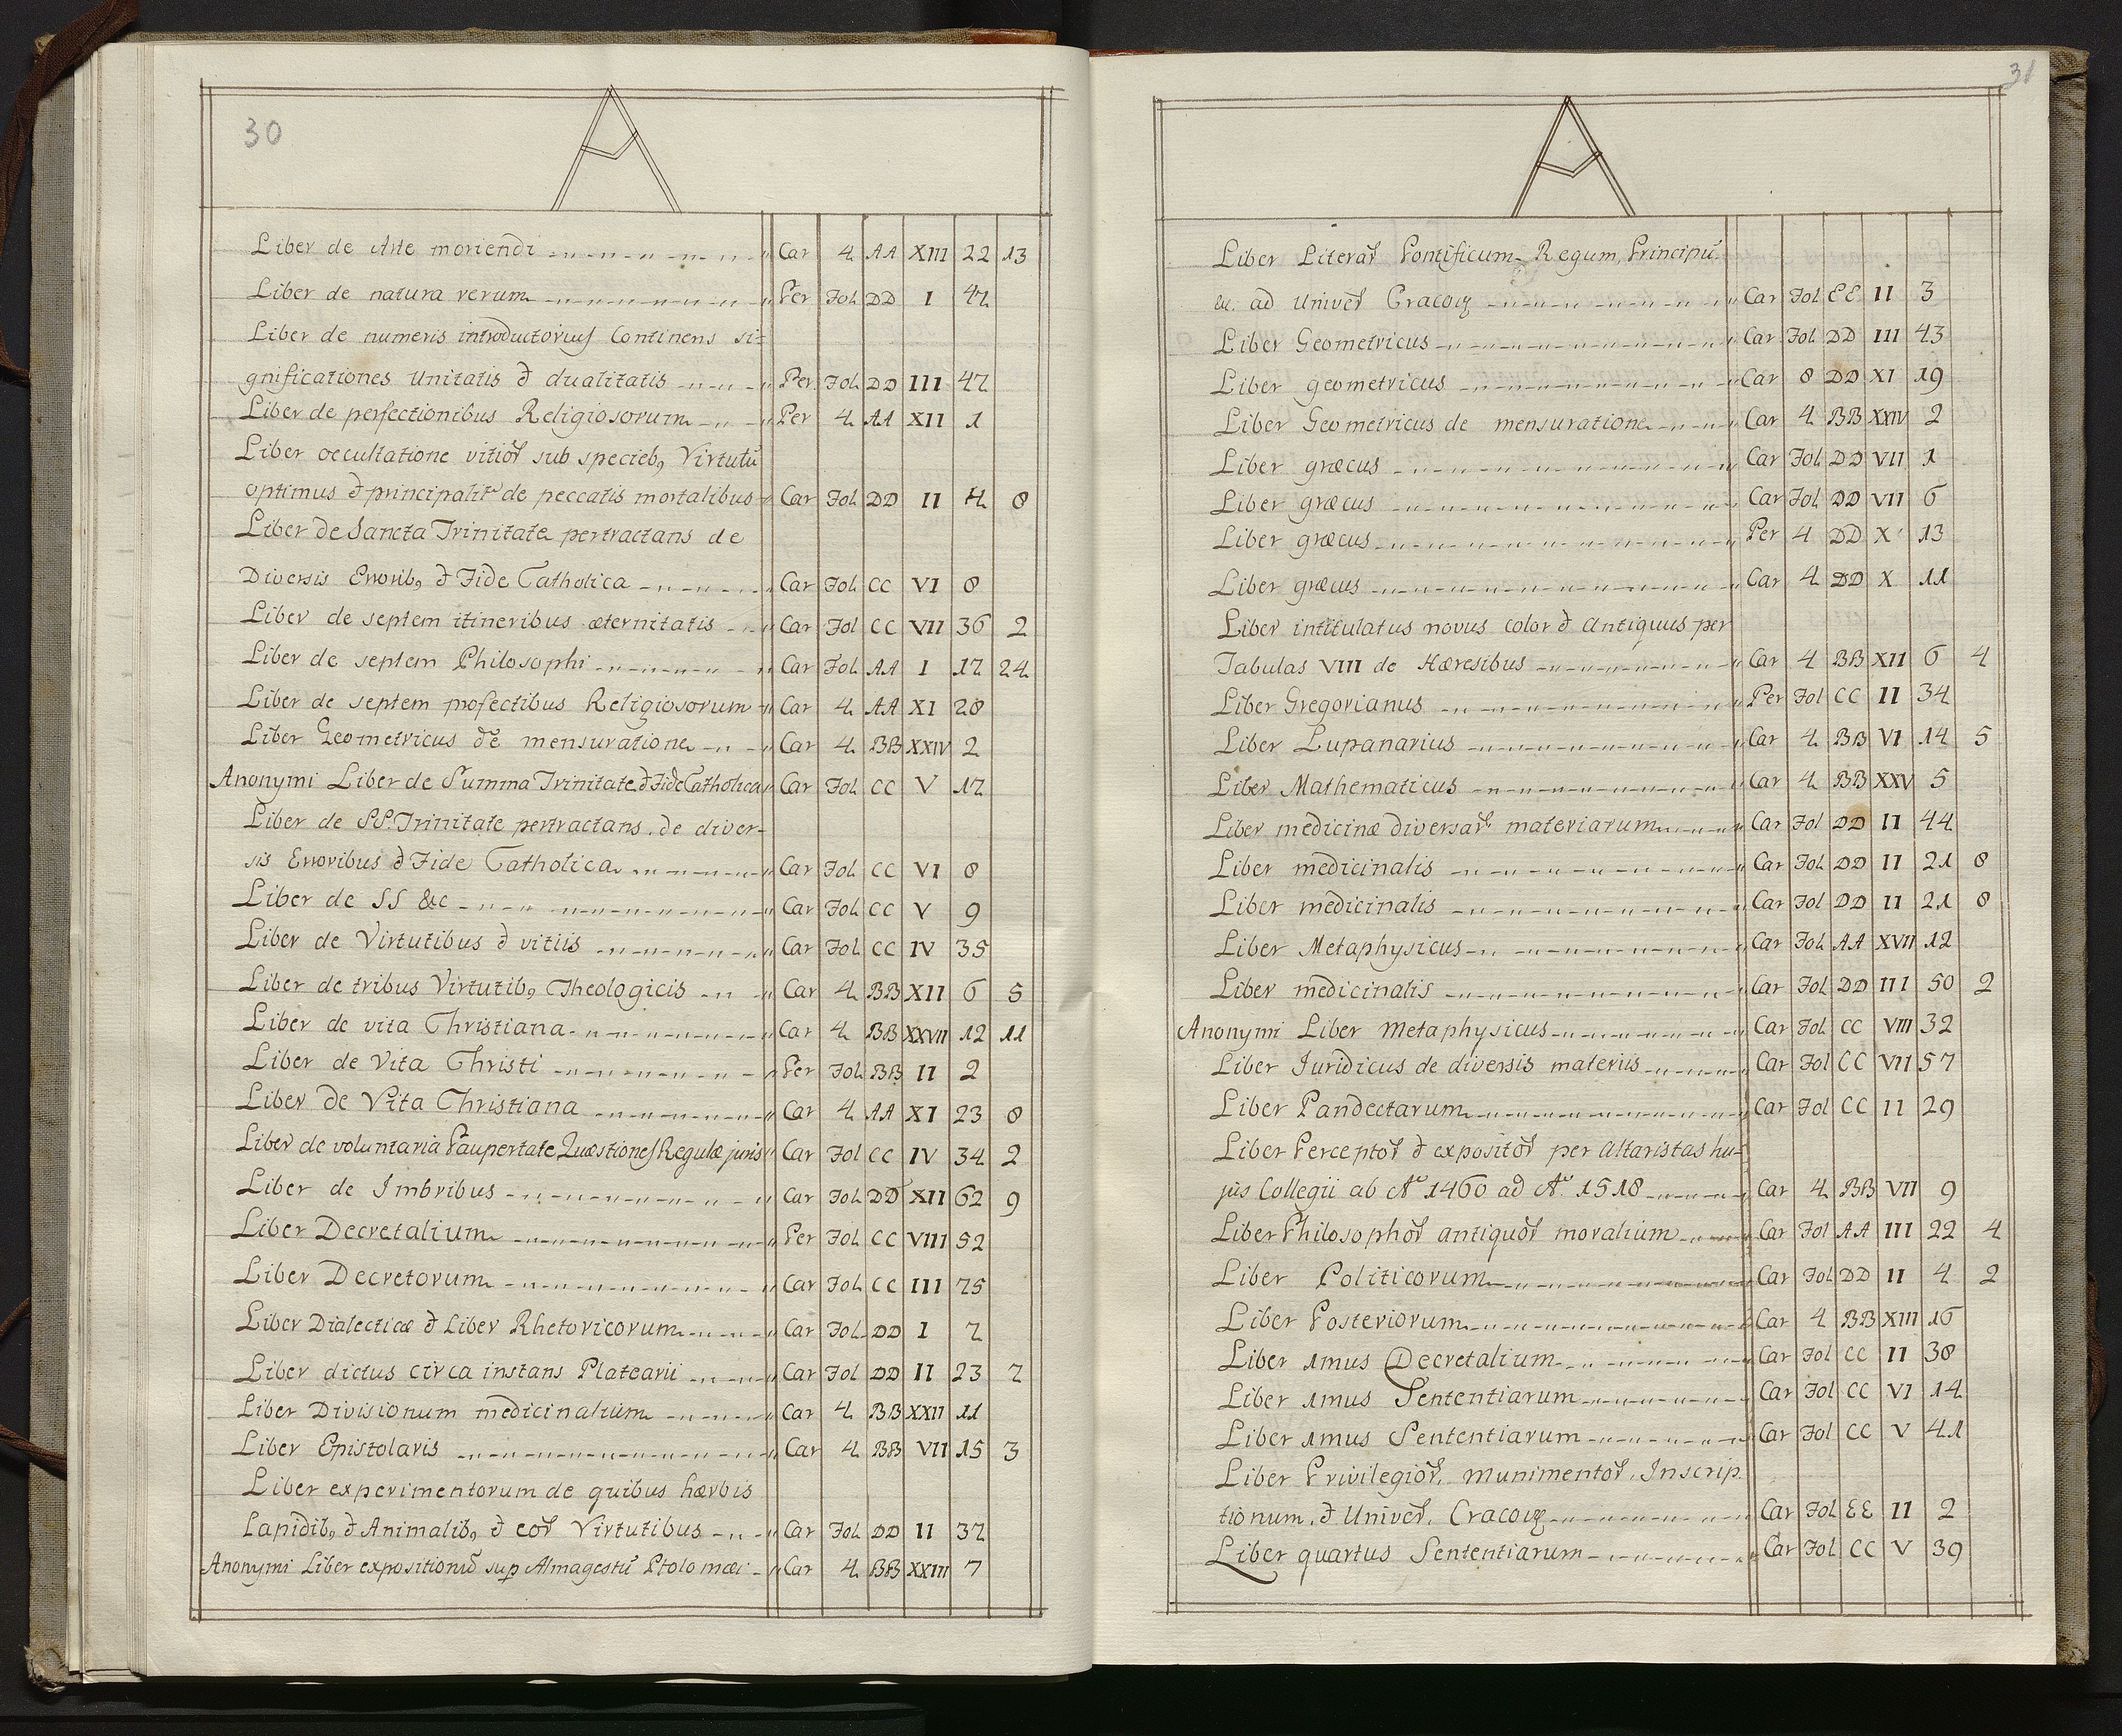 30
A
Liber de Arte moriendi Car 4 AA XIII 22 13
Liber de natura rerum Per Fol DD I 42
Liber de numeris introductorius Continens si-
gnificationes Unitatis & dualitatis Per Fol DD III 42
Liber de perfectionibus Religiosorum Per 4 AA XII 1
Liber occultatione vitioꝝ sub specieb, Virtutū
optimus & principalit de peccatis mortalibus Car Fol DD II 4 8
Liber de Sancta Trinitate pertractans de
Diversis Errorib, & Fide Catholica Car Fol CC VI 8
Liber de septem itineribus æternitatis Car Fol CC VII 36 2
Liber de septem Philosophi Car Fol AA I 12 24
Liber de septem profectibus Religiosorum Car 4 AA XI 28
Liber Geometricus de mensuratione Car 4 BB XXIV 2
Anonymi Liber de Summa Trinitate & Fide Catholica Car Fol CC V 12
Liber de SS. Trinitate pertractans de diver-
sis Erroribus & Fide Catholica Car Fol CC VI 8
Liber de SS &c Car Fol CC V 9
Liber de Virtutibus & vitiis Car Fol CC IV 35
Liber de tribus Virtutib, Theologicis Car 4 BB XII 6 5
Liber de vita Christiana Car 4 BB XXVII 12 11
Liber de Vita Christi Per Fol BB II 2
Liber de Vita Christiana Car 4 AA XI 23 8
Liber de voluntaria Paupertate Quæstiones Regulæ juris Car Fol CC IV 34 2
Liber de Imbribus Car Fol DD XII 62 9
Liber Decretalium Per Fol CC VIII 52
Liber Decretorum Car Fol CC III 25
Liber Dialecticæ & Liber Rhetoricorum Car Fol DD I 2
Liber dictus circa instans Platearii Car Fol DD II 23 2
Liber Divisionum medicinalium Car 4 BB XXII 11
Liber Epistolaris Car 4 BB VII 15 3
Liber experimentorum de quibus hærbis
Lapidib, & Animalib, & eoꝝ Virtutibus Car Fol DD II 32
Anonymi Liber expositionū sup Almagestū Ptolomæi Car 4 BB XXIII 7
31
A
Liber Literaꝝ Pontificum Regum, Principū
&c. ad Univeꝝ Cracov Car Fol EE II 3
Liber Geometricus Car Fol DD III 43
Liber geometricus Car 8 DD XI 19
Liber Geometricus de mensuratione Car 4 BB XXIV 2
Liber græcus Car Fol DD VII 1
Liber græcus Car Fol DD VII 6
Liber græcus Per 4 DD X 13
Liber græcus Car 4 DD X 11
Liber intitulatus novus color & antiquus per
Tabulas VIII de Hæresibus Car 4 BB XII 6 4
Liber Gregorianus Per Fol CC II 34
Liber Lupanarius Car 4 BB VI 14 5
Liber Mathematicus Car 4 BB XXV 5
Liber medicinæ diversaꝝ materiarum Car Fol DD II 44
Liber medicinalis Car Fol DD II 21 8
Liber medicinalis Car Fol DD II 21 8
Liber Metaphysicus Car Fol AA XVII 12
Liber medicinalis Car Fol DD III 50 2
Anonymi Liber Metaphysicus Car Fol CC VIII 32
Liber Juridicus de diversis materiis Car Fol CC VII 57
Liber Pandectarum Car Fol CC II 29
Liber Perceptoꝝ & expositoꝝ per Altaristas hu-
jus Collegii ab Aº 1460 ad Aº 1518 Car 4 BB VII 9
Liber Philosophoꝝ antiquoꝝ moralium Car Fol AA III 22 4
Liber Politicorum Car Fol DD II 4 2
Liber Posteriorum Car 4 BB XIII 16
Liber 1mus Decretalium Car Fol CC II 38
Liber 1mus Sententiarum Car Fol CC VI 14
Liber 1mus Sententiarum Car Fol CC V 41
Liber Privilegioꝝ, munimentoꝝ, Inscrip
tionum, & Univeꝝ. Cracov Car Fol EE II 2
Liber quartus Sententiarum Car Fol CC V 39